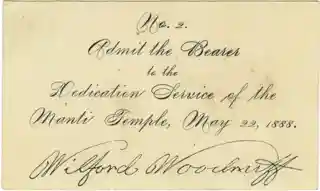 No. 2.
Admit the Bearer
to the
Dedication Service of the
Manti Temple, May 22, 1888.
Wilford Woodruff